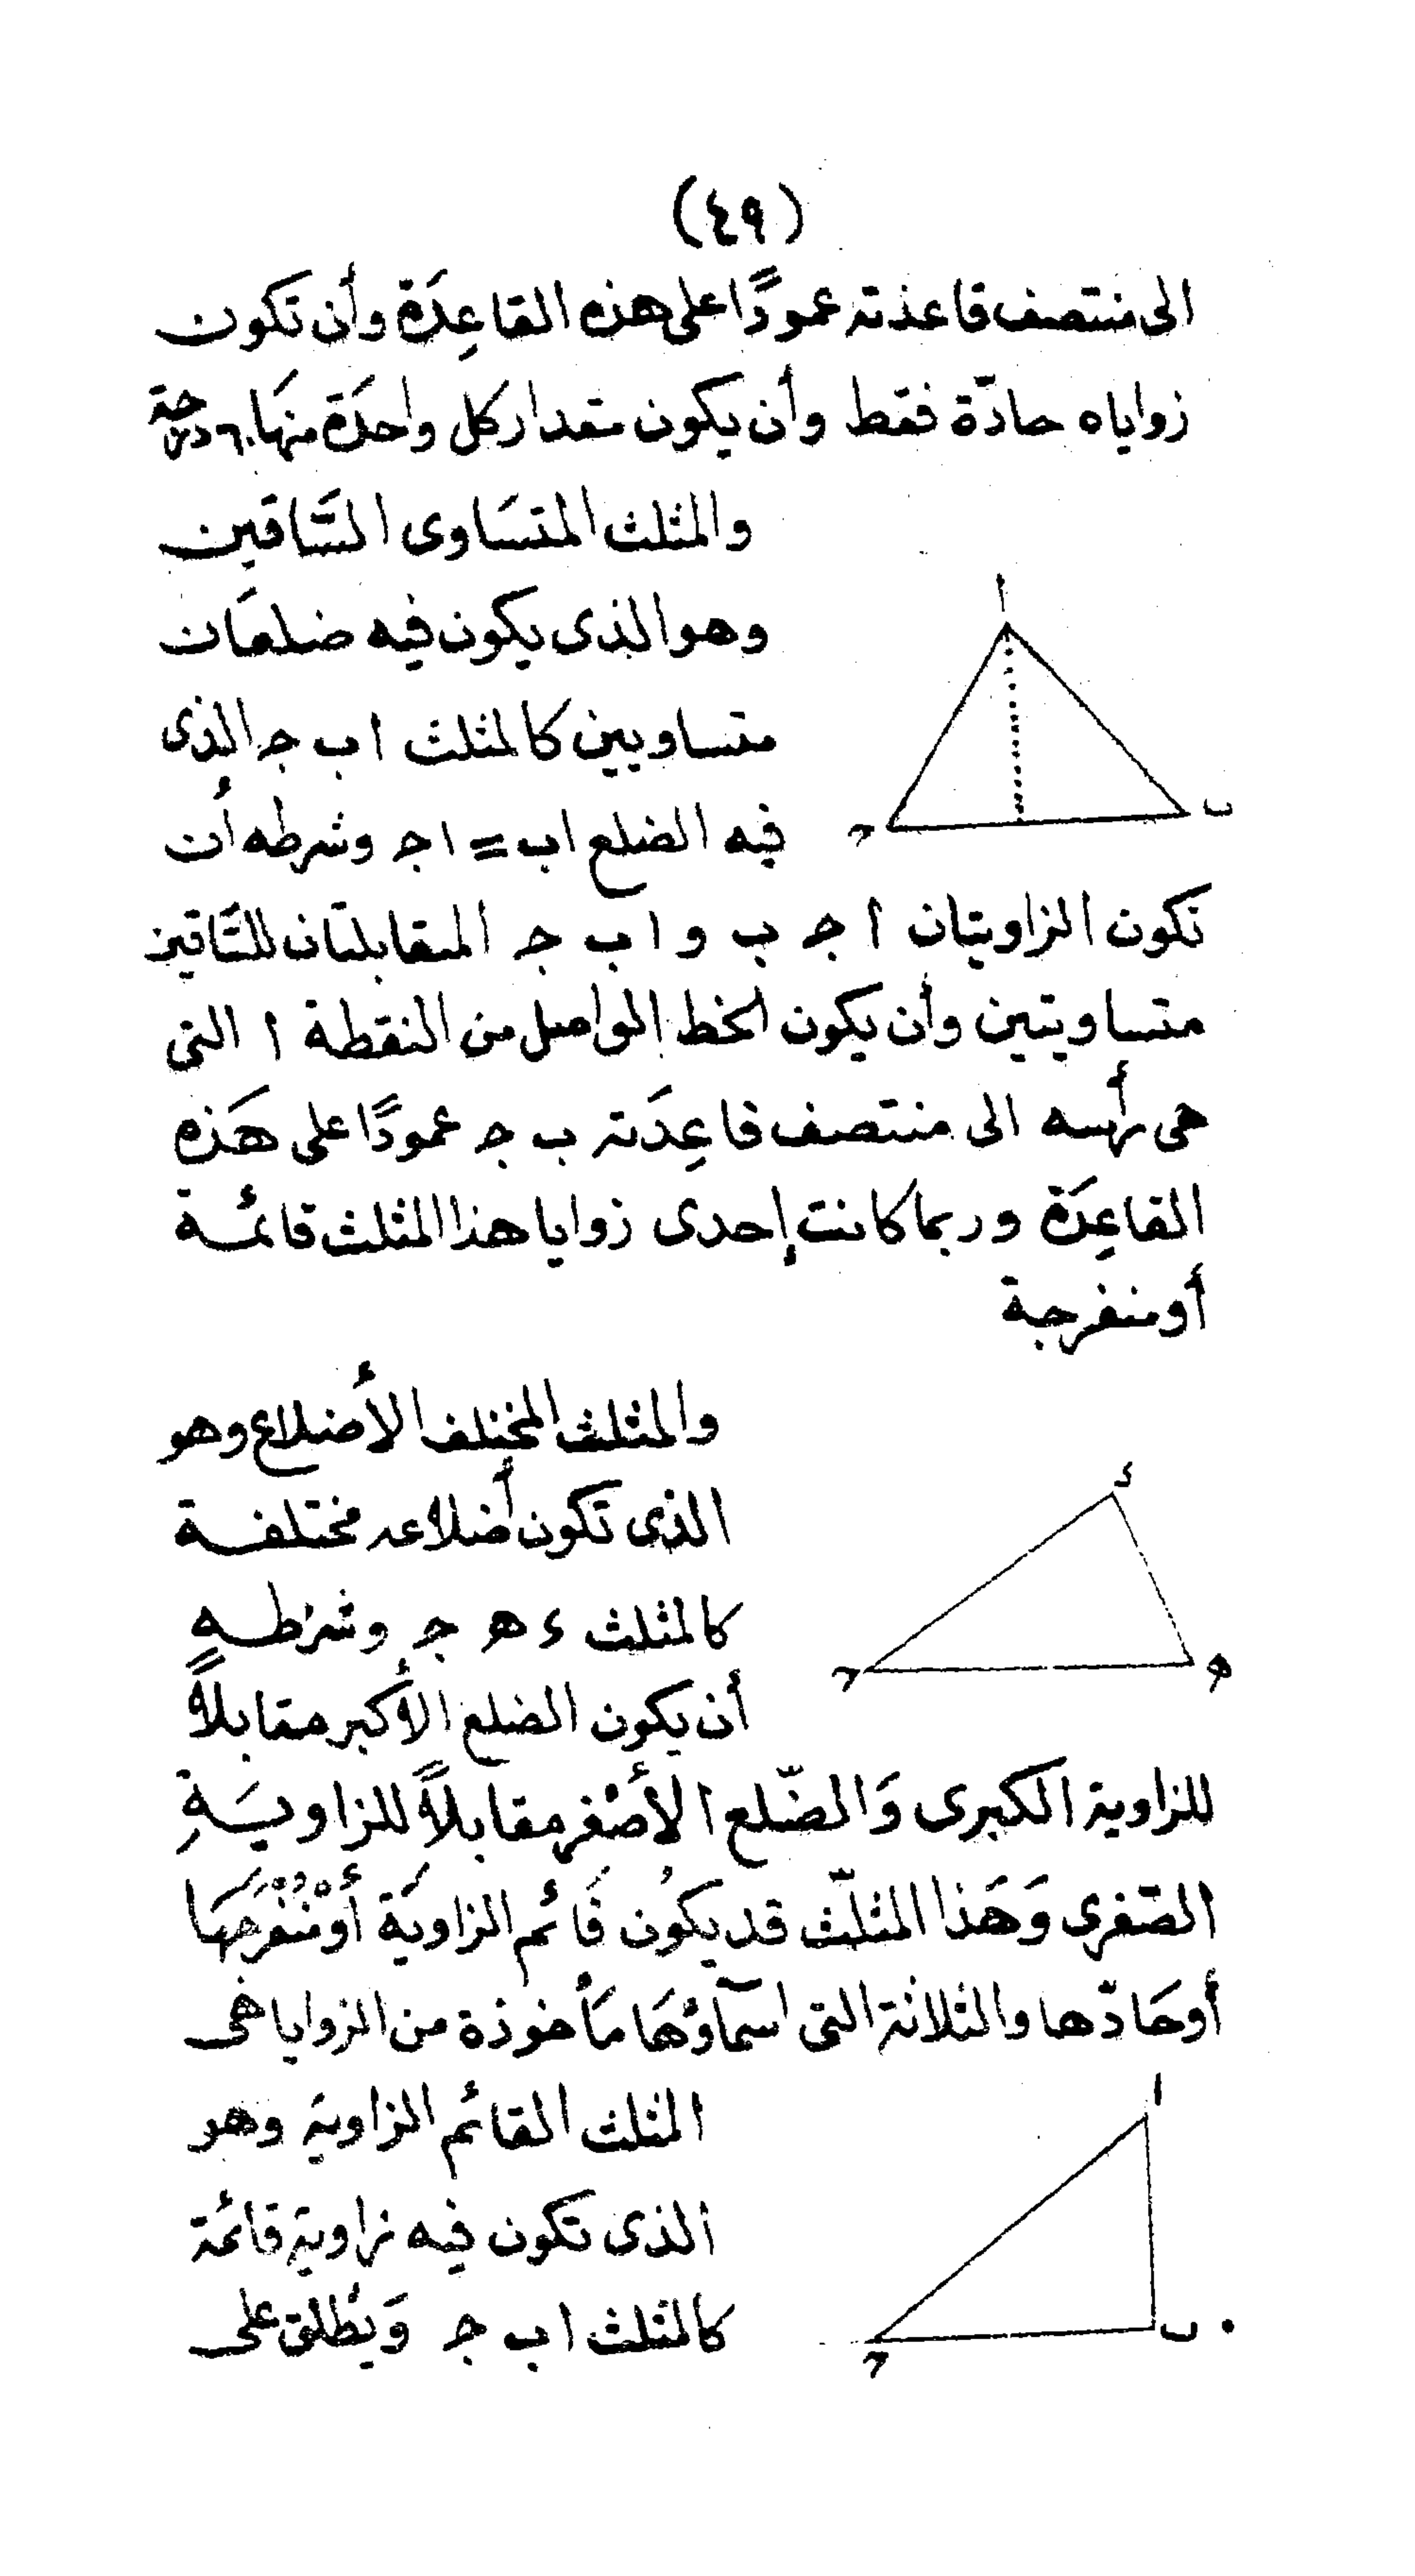 (٤٩)
الى منتصف قاعدته عمودًا على هذه القاعِدَة وأن تكون
زواياه حادّة فقط وأن يكون مقدار كل واحدَة منهَا ٦٠ درجة
والمثلث المتسَاوى السَّاقين
وهو الذى يكون فيه ضلعَان
متساويين كالمثلث ا ب جـ الذى
فيه الضلع اب = ا جـ وشرطه أن
تكون الزاويتان ا جـ ب و ا ب جـ المتقابلتان للسَّاقين
متساويتين وأن يكون الخط الواصل من النقطة ا التى
هى رأسه الى منتصف قاعِدَته ب جـ عمودًا على هَذه
القاعِدَة وربما كانت إحدى زوايا هذا المثلث قائمة
أو منفرجة
والمثلث المختلف الأضلاع وهو
الذى تكون أضلاعه مختلفة
كالمثلث د هـ جـ وشرطه
أن يكون الضلع الأكبر مقابلاً
للزاوية الكبرى وَالضّلع الأصْغر مقابلاً للزاويَةِ
الصّغرى وَهَذا المثلّث قد يكُون قَائم الزاويَة أومُنْفرجهَا
أوحَادّها والثلاثة التى اسمآؤهَا مَأخوذة من الزوايا هى
المثلث القائم الزاوية وهو
الذى تكون فيه زاوية قائمة
كالمثلث ا ب جـ وَيُطلق على
ا
ب
جـ
د
هـ
جـ
ا
ب
جـ